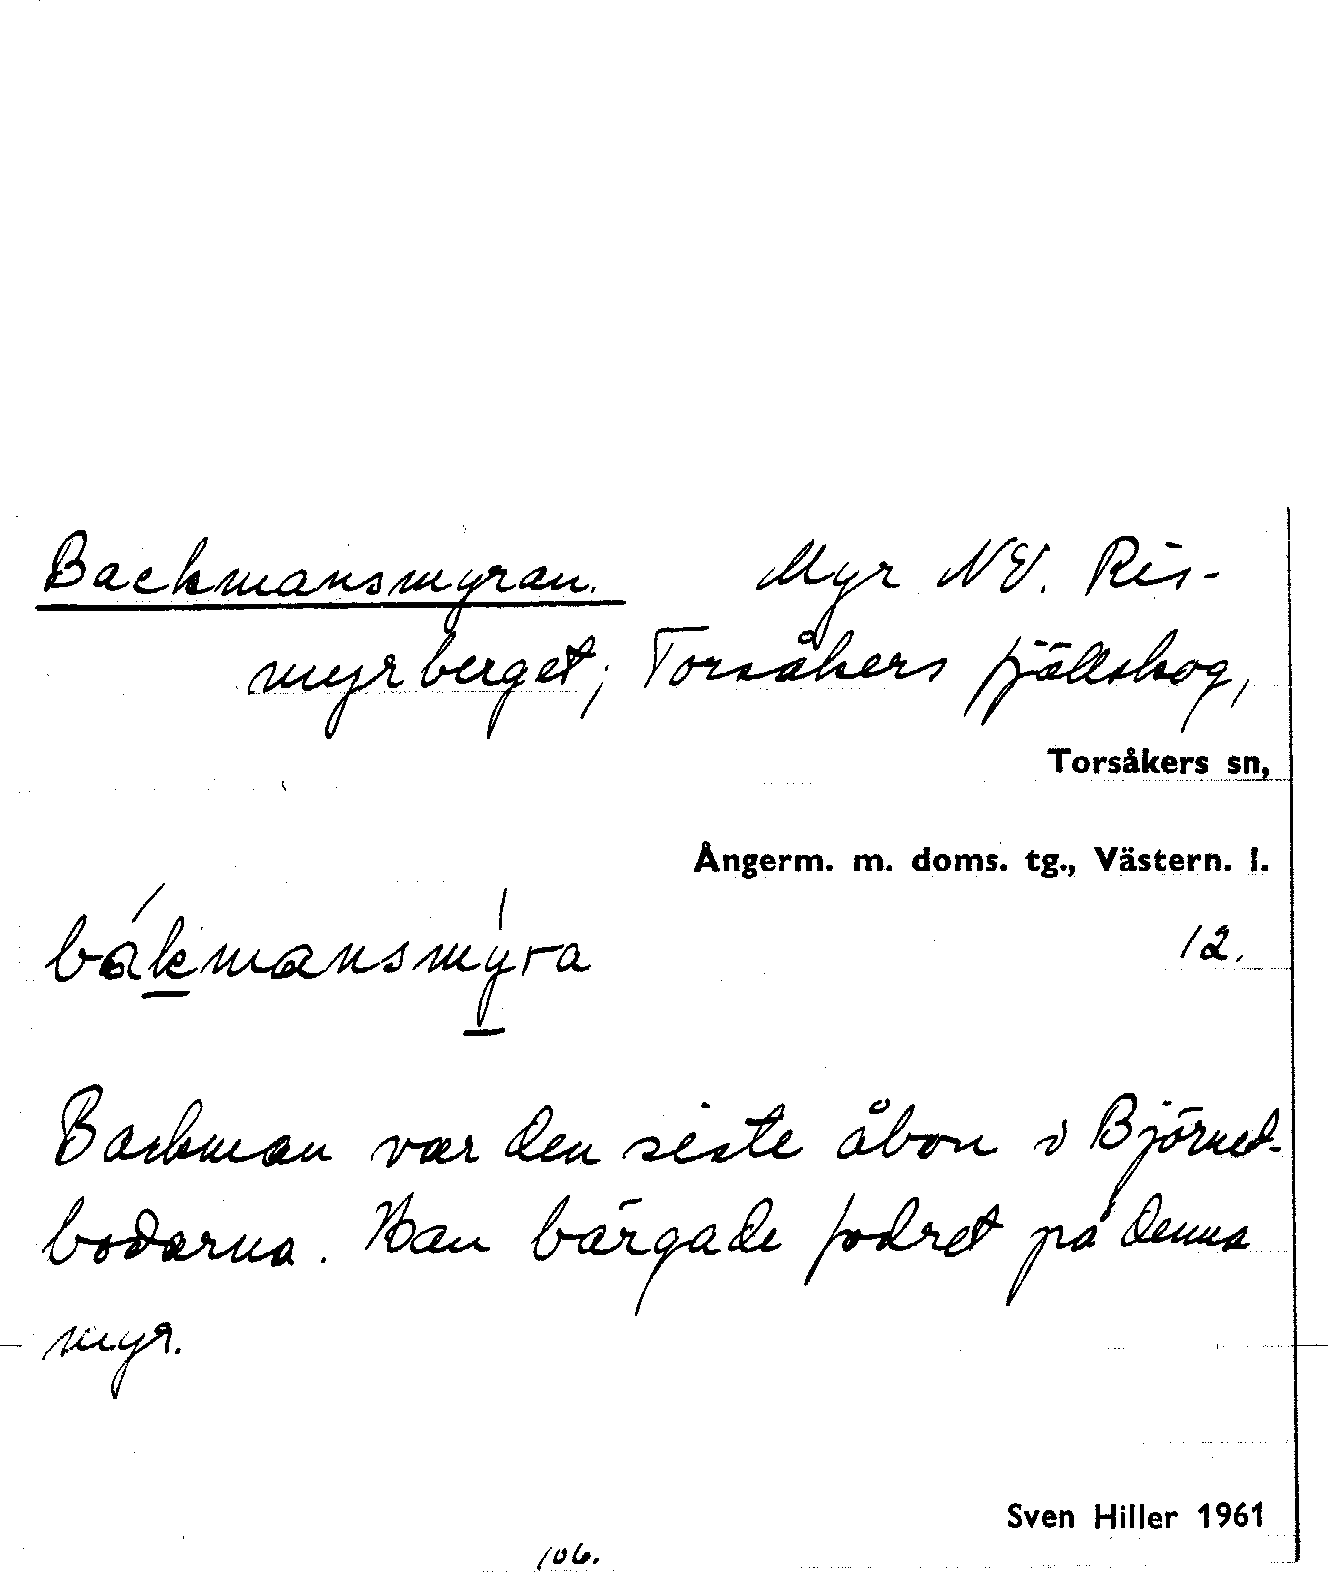 Backmansmyran. Myr NV. Ris-
myrberget; Torsåkers fjällskog,
Torsåkers sn,
Ångerm. m. doms. tg., Västern. l.
bákmansmýra 12.
Backman var den siste åbon i Björned-
bodarna. Han bärgade fodret på denna
myr.
Sven Hiller 1961
106.